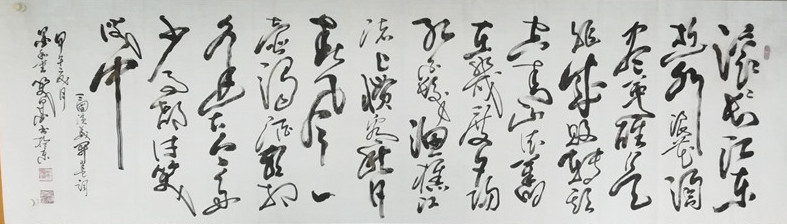 滚滚长江东
逝水浪花淘
尽英雄是
非成败转头
空青山依旧
在几度夕阳
红白发渔樵江
渚上惯看秋月
春风一
壶浊酒喜相
逢古今多
少事都付笑
谈中
三国演义开篇词
甲午夏月